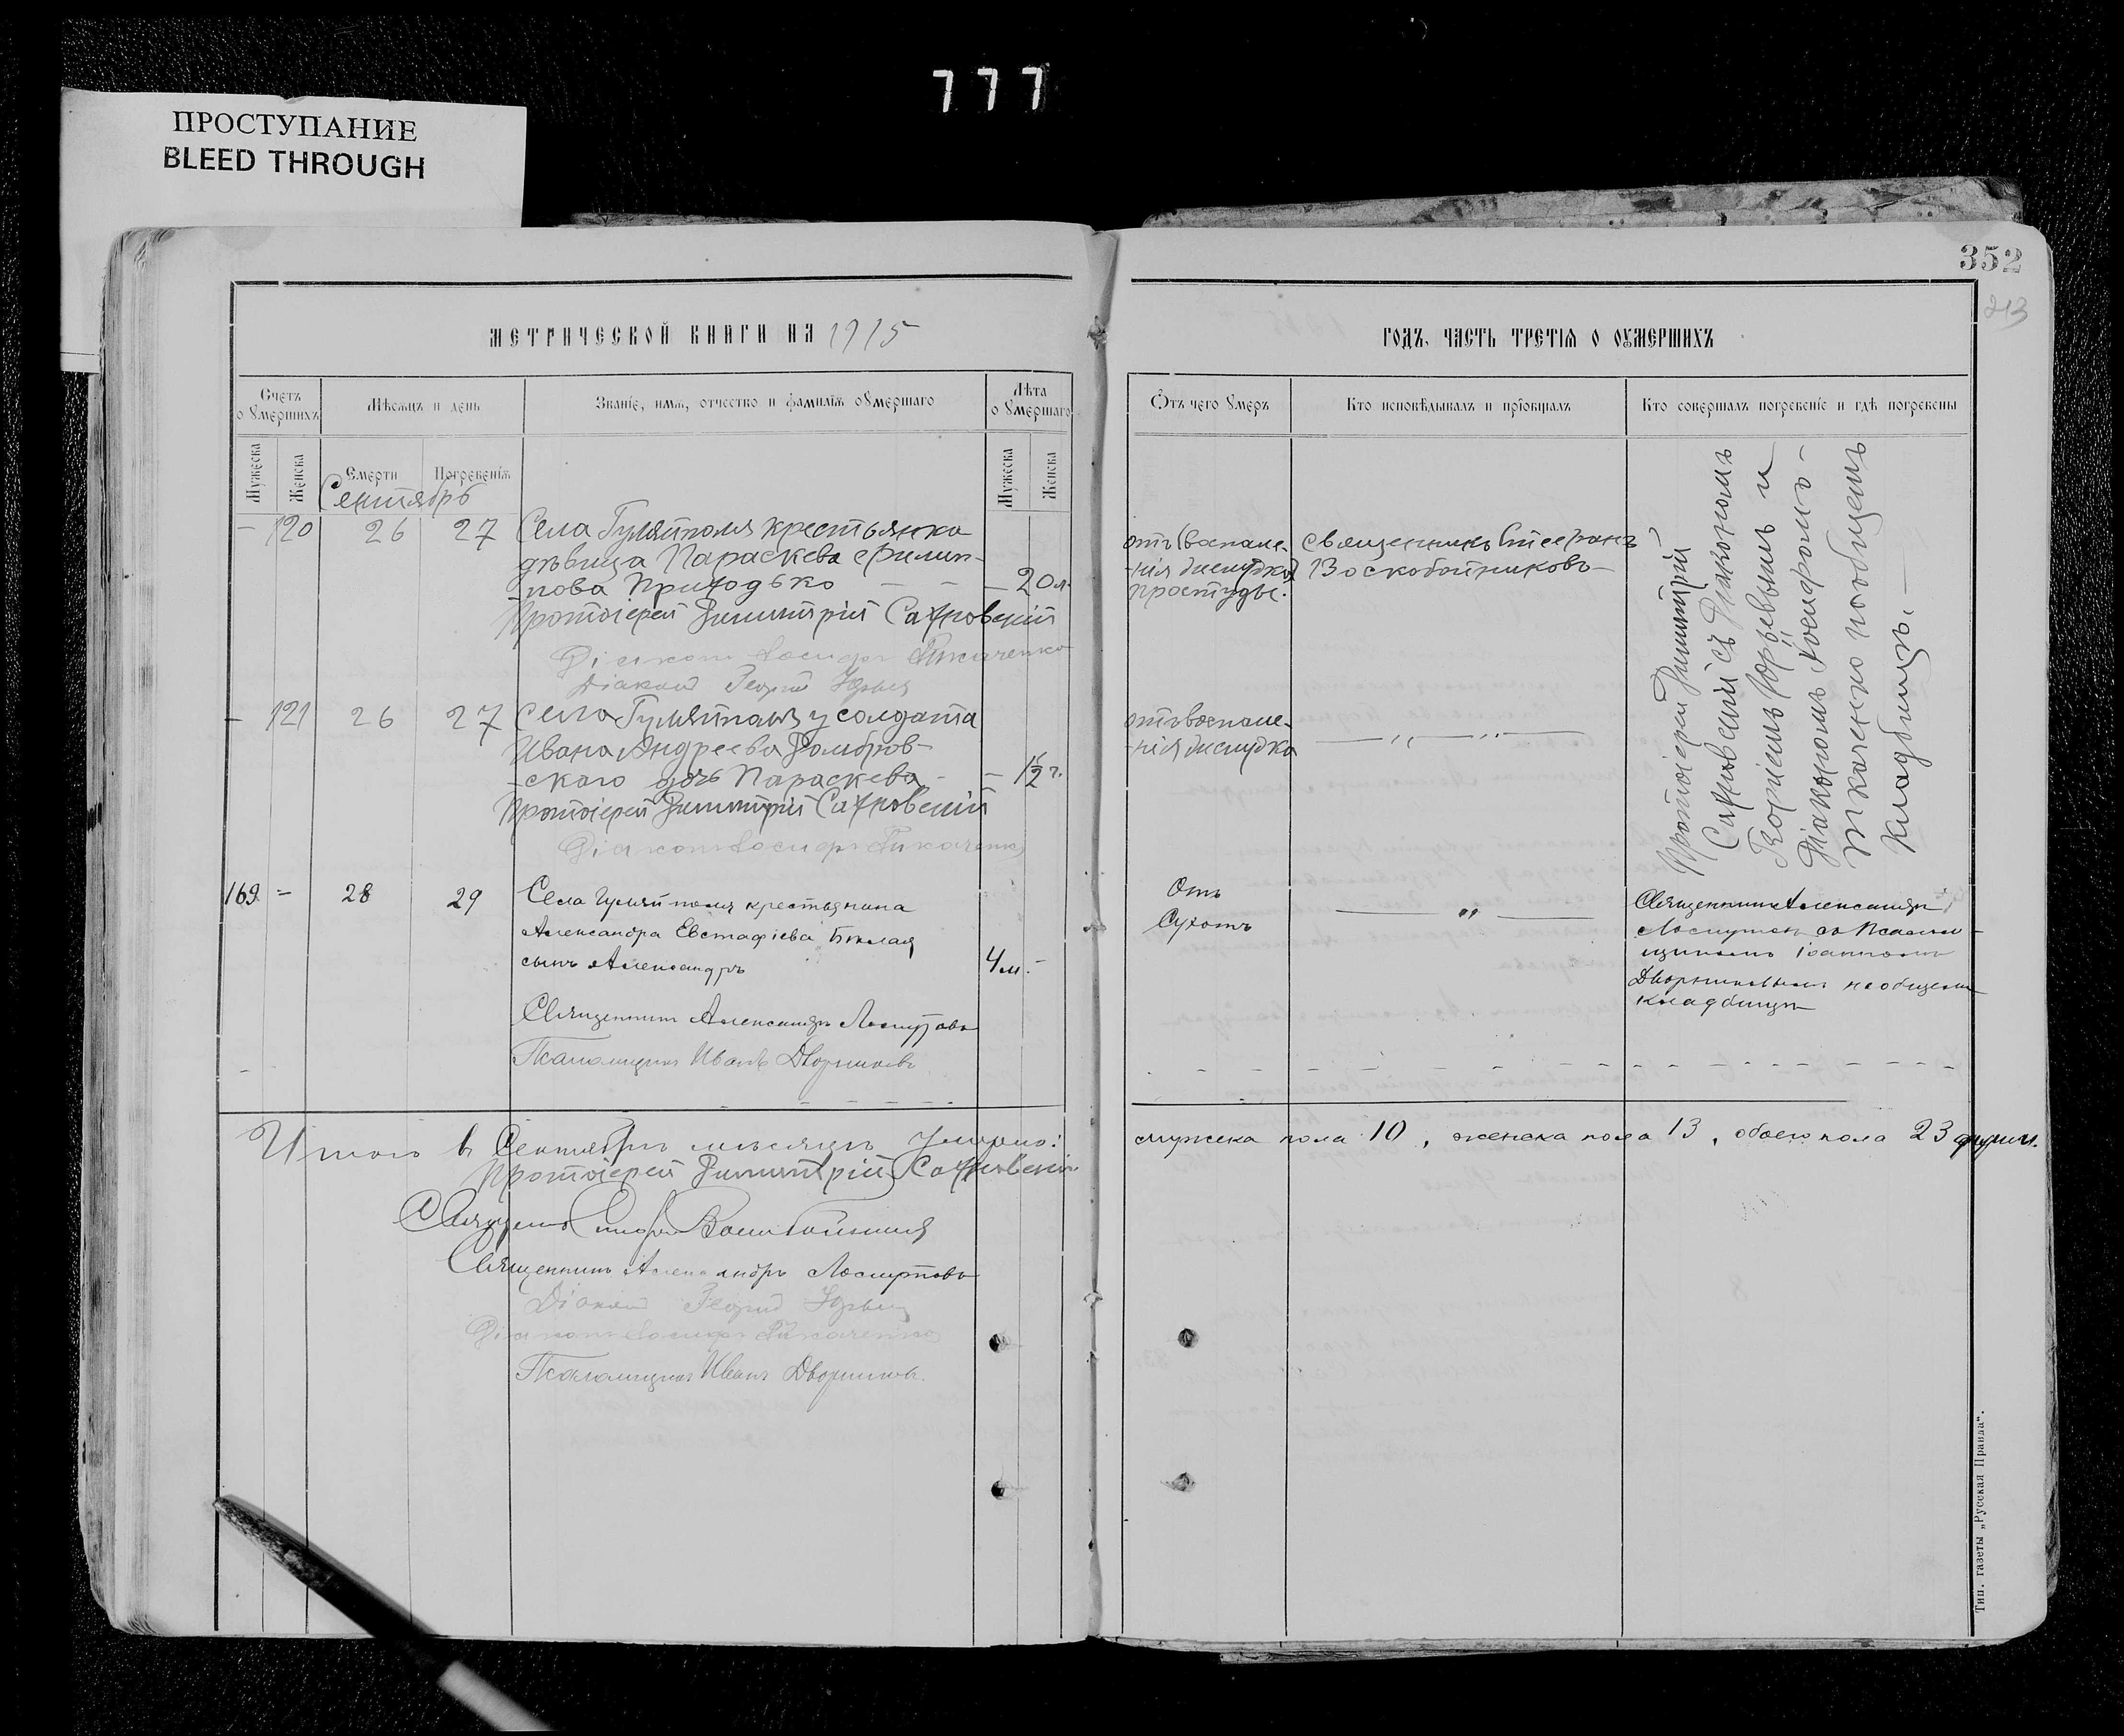 777
ПРОСТУПАНИЕ
BLEED THROUGH
352
213
МЕТРИЧЕСКОЙ КНИГИ НА 1915
ГОДЪ, ЧАСТЬ ТРЕТІЯ О ОУМЕРШИХЪ
Счетъ о умершихъ
Мѣсяцъ и день
Званіе, имя, отчество и фамилія оумершаго
Лѣта оумершаго
Отъ чего умеръ
Кто исповѣдывалъ и пріобщалъ
Кто совершалъ погребеніе и гдѣ погребены
Мужеска
Женска
Смерти
Погребенія
Мужеска
Женска
Сентябрь
– 120 26 27 Села Гуляйполя крестьянка
дѣвица Параскева Филип-
пова Приходько – – – 20 л.
Протоіерей Димитрій Сахновскій
Діаконъ Іосифъ Ткаченко
Діаконъ Георгій Юрьев
отъ воспале-
нія желудка
простуды.
Священникъ Стефанъ
Воскобойниковъ –
Протоіерей Димитрій
Сахновскій съ Діакономъ
Георгіемъ Юрьевымъ и
Діакономъ Іосифомъ –
Ткаченко на общемъ
кладбищѣ. –
– 121 26 27 Села Гуляйполя у солдата
Ивана Андреева Домбров-
скаго дочь Параскева – – 1½ г.
Протоіерей Димитрій Сахновскій
Діаконъ Іосифъ Ткаченко
отъ воспале-
нія желудка
— „ — „ —
169 = 28 29 Села Гуляйполя крестьянина
Александра Евстафіева
сынъ Александръ 4 м. –
Священникъ Александръ Лоскутовъ
Псаломщикъ Иванъ Дворниковъ
Отъ
Сухотъ
— „ —
Священникъ Александръ
Лоскутовъ съ Псалом-
щикомъ Іоанномъ
Дворниковымъ на общемъ
кладбищѣ
Итого въ Сентябрѣ мѣсяцѣ умерло: мужеска пола 10, женска пола 13, обоего пола 23 души.
Протоіерей Димитрій Сахновскій
Священникъ Стефанъ Воскобойников
Священникъ Александръ Лоскутовъ
Діаконъ Георгій Юрьев
Діаконъ Іосифъ Ткаченко
Псаломщикъ Иванъ Дворниковъ.
Тип. газеты „Русская Правда“.